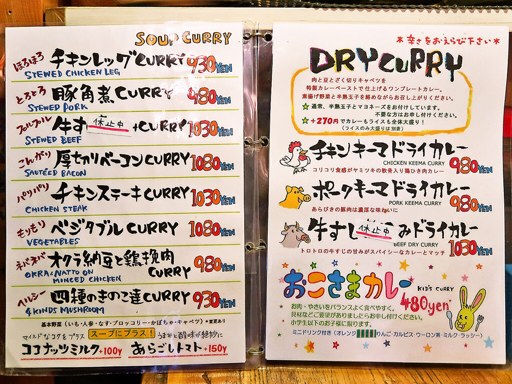 SOUP CURRY
ほろほろ チキンレッグCURRY 930YEN
STEWED CHICKEN LEG
とろとろ 豚角煮CURRY 980YEN
STEWED PORK
牛す 休止中 +CURRY 1030YEN
STEWED BEEF
こんがり 厚切りベーコンCURRY 1080YEN
SAUTEED BACON
パリパリ チキンステーキCURRY 1030YEN
CHICKEN STEAK
もりもり ベジタブルCURRY 1080YEN
VEGETABLES
ネバネバ オクラ納豆と鶏挽肉CURRY 980YEN
OKRA & NATTO ON MINCED CHICKEN
ヘルシー 四種のきのこ達CURRY 930YEN
4 KINDS MUSHROOM
基本野菜（いも・人参・なす・ブロッコリー・かぼちゃ・キャベツ）
マイルドなコクをプラス スープにプラス！ うま味と酸味が絶妙に
ココナッツミルク+100y あらごしトマト+150y
*辛さをおえらび下さい*
DRY CURRY
肉と豆とざく切りキャベツを
特製カレーペーストで仕上げるワンプレートカレー。
素揚げ野菜と半熟玉子を絡めながらお召し上がりください。
☆通常、半熟玉子とマヨネーズをお付けしています。
不要な方はお申し付けください。
☆+270円でカレーもライスも全体大盛り！
（ライスのみ大盛りは別途）
チキンキーマドライカレー 980YEN
CHICKEN KEEMA CURRY
コリコリ食感がヤミツキの軟骨入り鶏ひき肉カレー
ポークキーマドライカレー 980YEN
PORK KEEMA CURRY
あらびきの豚肉は濃厚な味わい
牛すじ 休止中 みドライカレー 1030YEN
BEEF DRY CURRY
トロトロの牛すじの甘みがスパイシーなカレーとマッチ
おこさまカレー KID'S CURRY
480yen
お肉・やさいをバランスよく食べやすく。
小学生以下のお子様に限ります。
ミニドリンク付き（オレンジ
りんご・カルピス・ウーロン茶・ミルク・ラッシー）